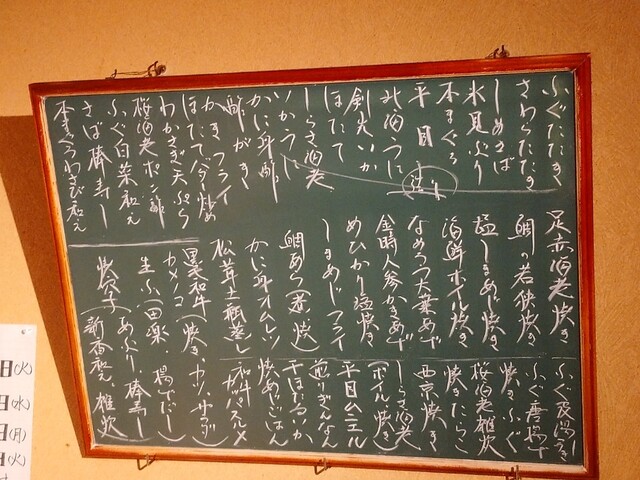 ふぐたたき
さわらたたき
しめさば
氷見ぶり
本まぐろ
平目
北海つぶ
剣先いか
ほたて
しらさ海老
いかうに
かに身酢
酢がき
かきフライ
ほたてバター炒め
わかさぎ天ぷら
桜海老ポン酢
ふぐ白菜和え
さば棒寿し
本まぐろわさび和え
足赤海老焼き
鯛の若狭焼き
極しまあじ焼き
海鮮ホイル焼き
なめろう大葉あげ
金時人参かきあげ
めひかり塩焼き
しまあじフライ
鯛あら(煮、焼)
かに身オムレツ
松茸土瓶蒸し
黒毛和牛(焼き、カツ、サラダ)
カメノコ
生ふ(田楽、揚げだし)
焼穴子(あぶり、棒寿し
新香和え、雑炊)
ふぐ皮湯引き
ふぐ唐揚げ
焼きふぐ
桜海老雑炊
焼きたらこ
西京焼き
しらさ海老
(ボイル、焼き)
平目ムニエル
煎りぎんなん
干ほたるいか
焼めしごはん
和牛
日(火)
日(水)
日(月)
日(火)